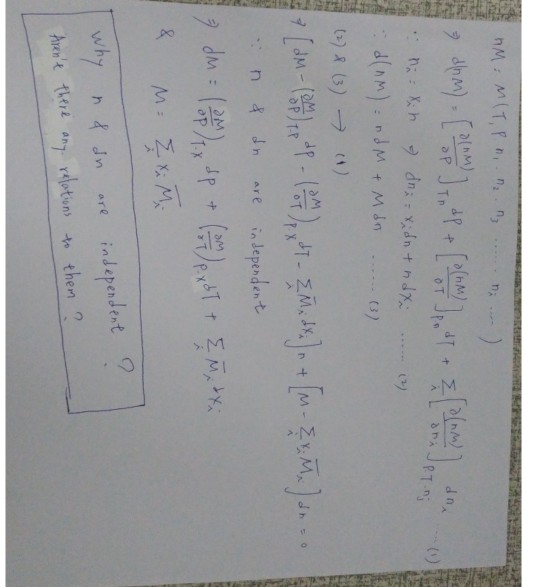 nM = M(T, P, n₁, n₂, n₃ ........ nᵢ ....)
⇒ d(nM) = [∂(nM)/∂P]_{Tn} dP + [∂(nM)/∂T]_{Pn} dT + Σᵢ [∂(nM)/∂nᵢ]_{P,T,nⱼ} dnᵢ ......(1)
∵ nᵢ = xᵢn ⇒ dnᵢ = xᵢdn + ndxᵢ ........ (2)
∵ d(nM) = ndM + Mdn ........ (3)
(2) & (3) → (1)
⇒ [dM - (∂M/∂P)_{T,P} dP - (∂M/∂T)_{P,X} dT - Σᵢ M̄ᵢdxᵢ]n + [M - Σᵢ xᵢM̄ᵢ]dn = 0
∵ n & dn are independent
⇒ dM = (∂M/∂P)_{T,X} dP + (∂M/∂T)_{P,X} dT + Σᵢ M̄ᵢdxᵢ
& M = Σᵢ xᵢM̄ᵢ
Why n & dn are independent ?
Aren't there any relations to them ?